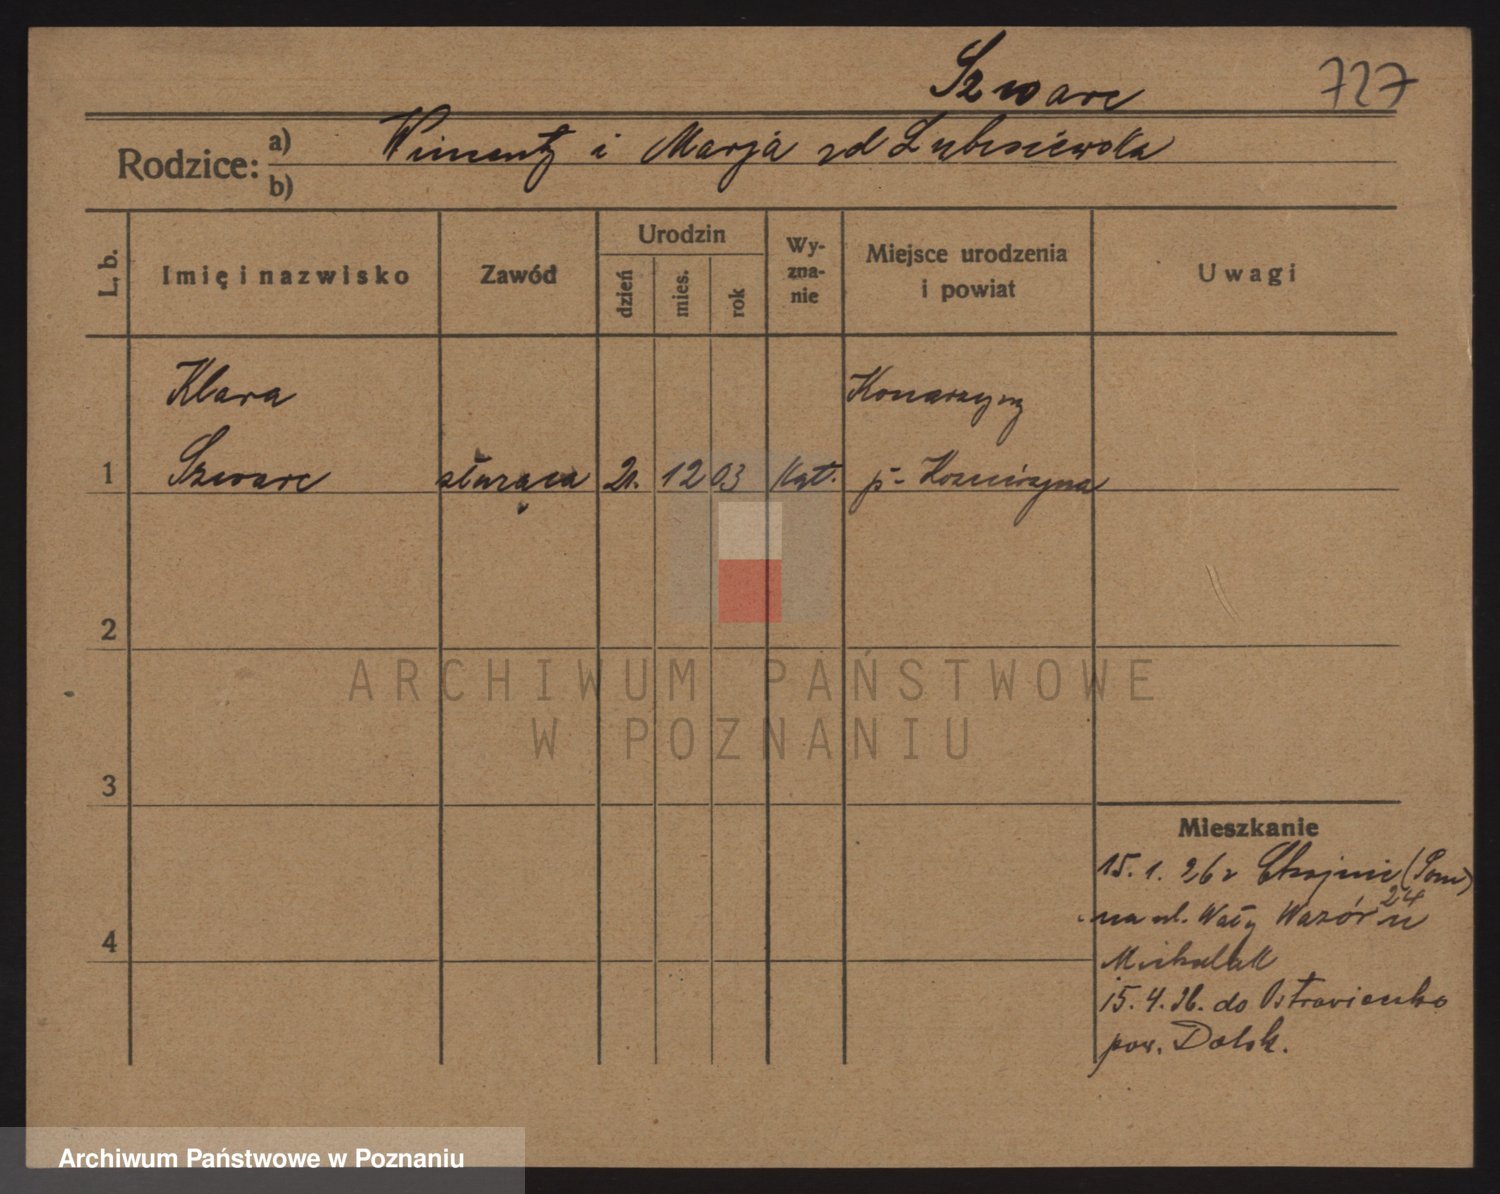 Szwarc 727
Rodzice: a) Wincenty i Marja zd Lubiszewska
b)
L. b. Imię i nazwisko Zawód Urodzin dzień mies. rok Wy-zna-nie Miejsce urodzenia i powiat Uwagi
Klara Konarzyny
1 Szwarc służąca 21. 12 03 kat. p- Kościerzyna
2
ARCHIWUM PAŃSTWOWE
W POZNANIU
3
Mieszkanie
15. 1. 26 z Chojnic (Pom)
na ul. Wały Wazów 24 u
4 Michalak
15. 4. 26. do Ostrowieczko
pow. Dolsk.
Archiwum Państwowe w Poznaniu